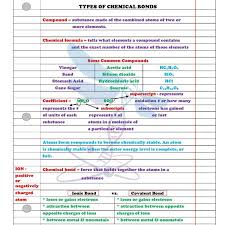 TYPES OF CHEMICAL BONDS
Compound – substance made of the combined atoms of two or
more elements.
Chemical formula – tells what elements a compound contains
and the exact number of the atoms of those elements
Some Common Compounds
Vinegar Acetic acid
Sand Silicon dioxide
Stomach Acid Hydrochloric acid HCl
Cane Sugar Sucrose
superscript - represents
Coefficient oxidation # or how many
represents the # subscript represents electrons has gained
of units of each # of or lost
substance atoms in a molecule of
a particular element
Atoms form compounds to become chemically stable. An atom
is chemically stable when the outer energy level is complete, or
full.
ION - Chemical bond – force that holds together the atoms in a
positive substance.
or
negatively
charged Ionic Bond vs. Covalent Bond
atom * loses or gains electrons * loses or gains electrons
* attraction between * attraction between
opposite charges of ions opposite charges of ions
* between metal and * between metal and